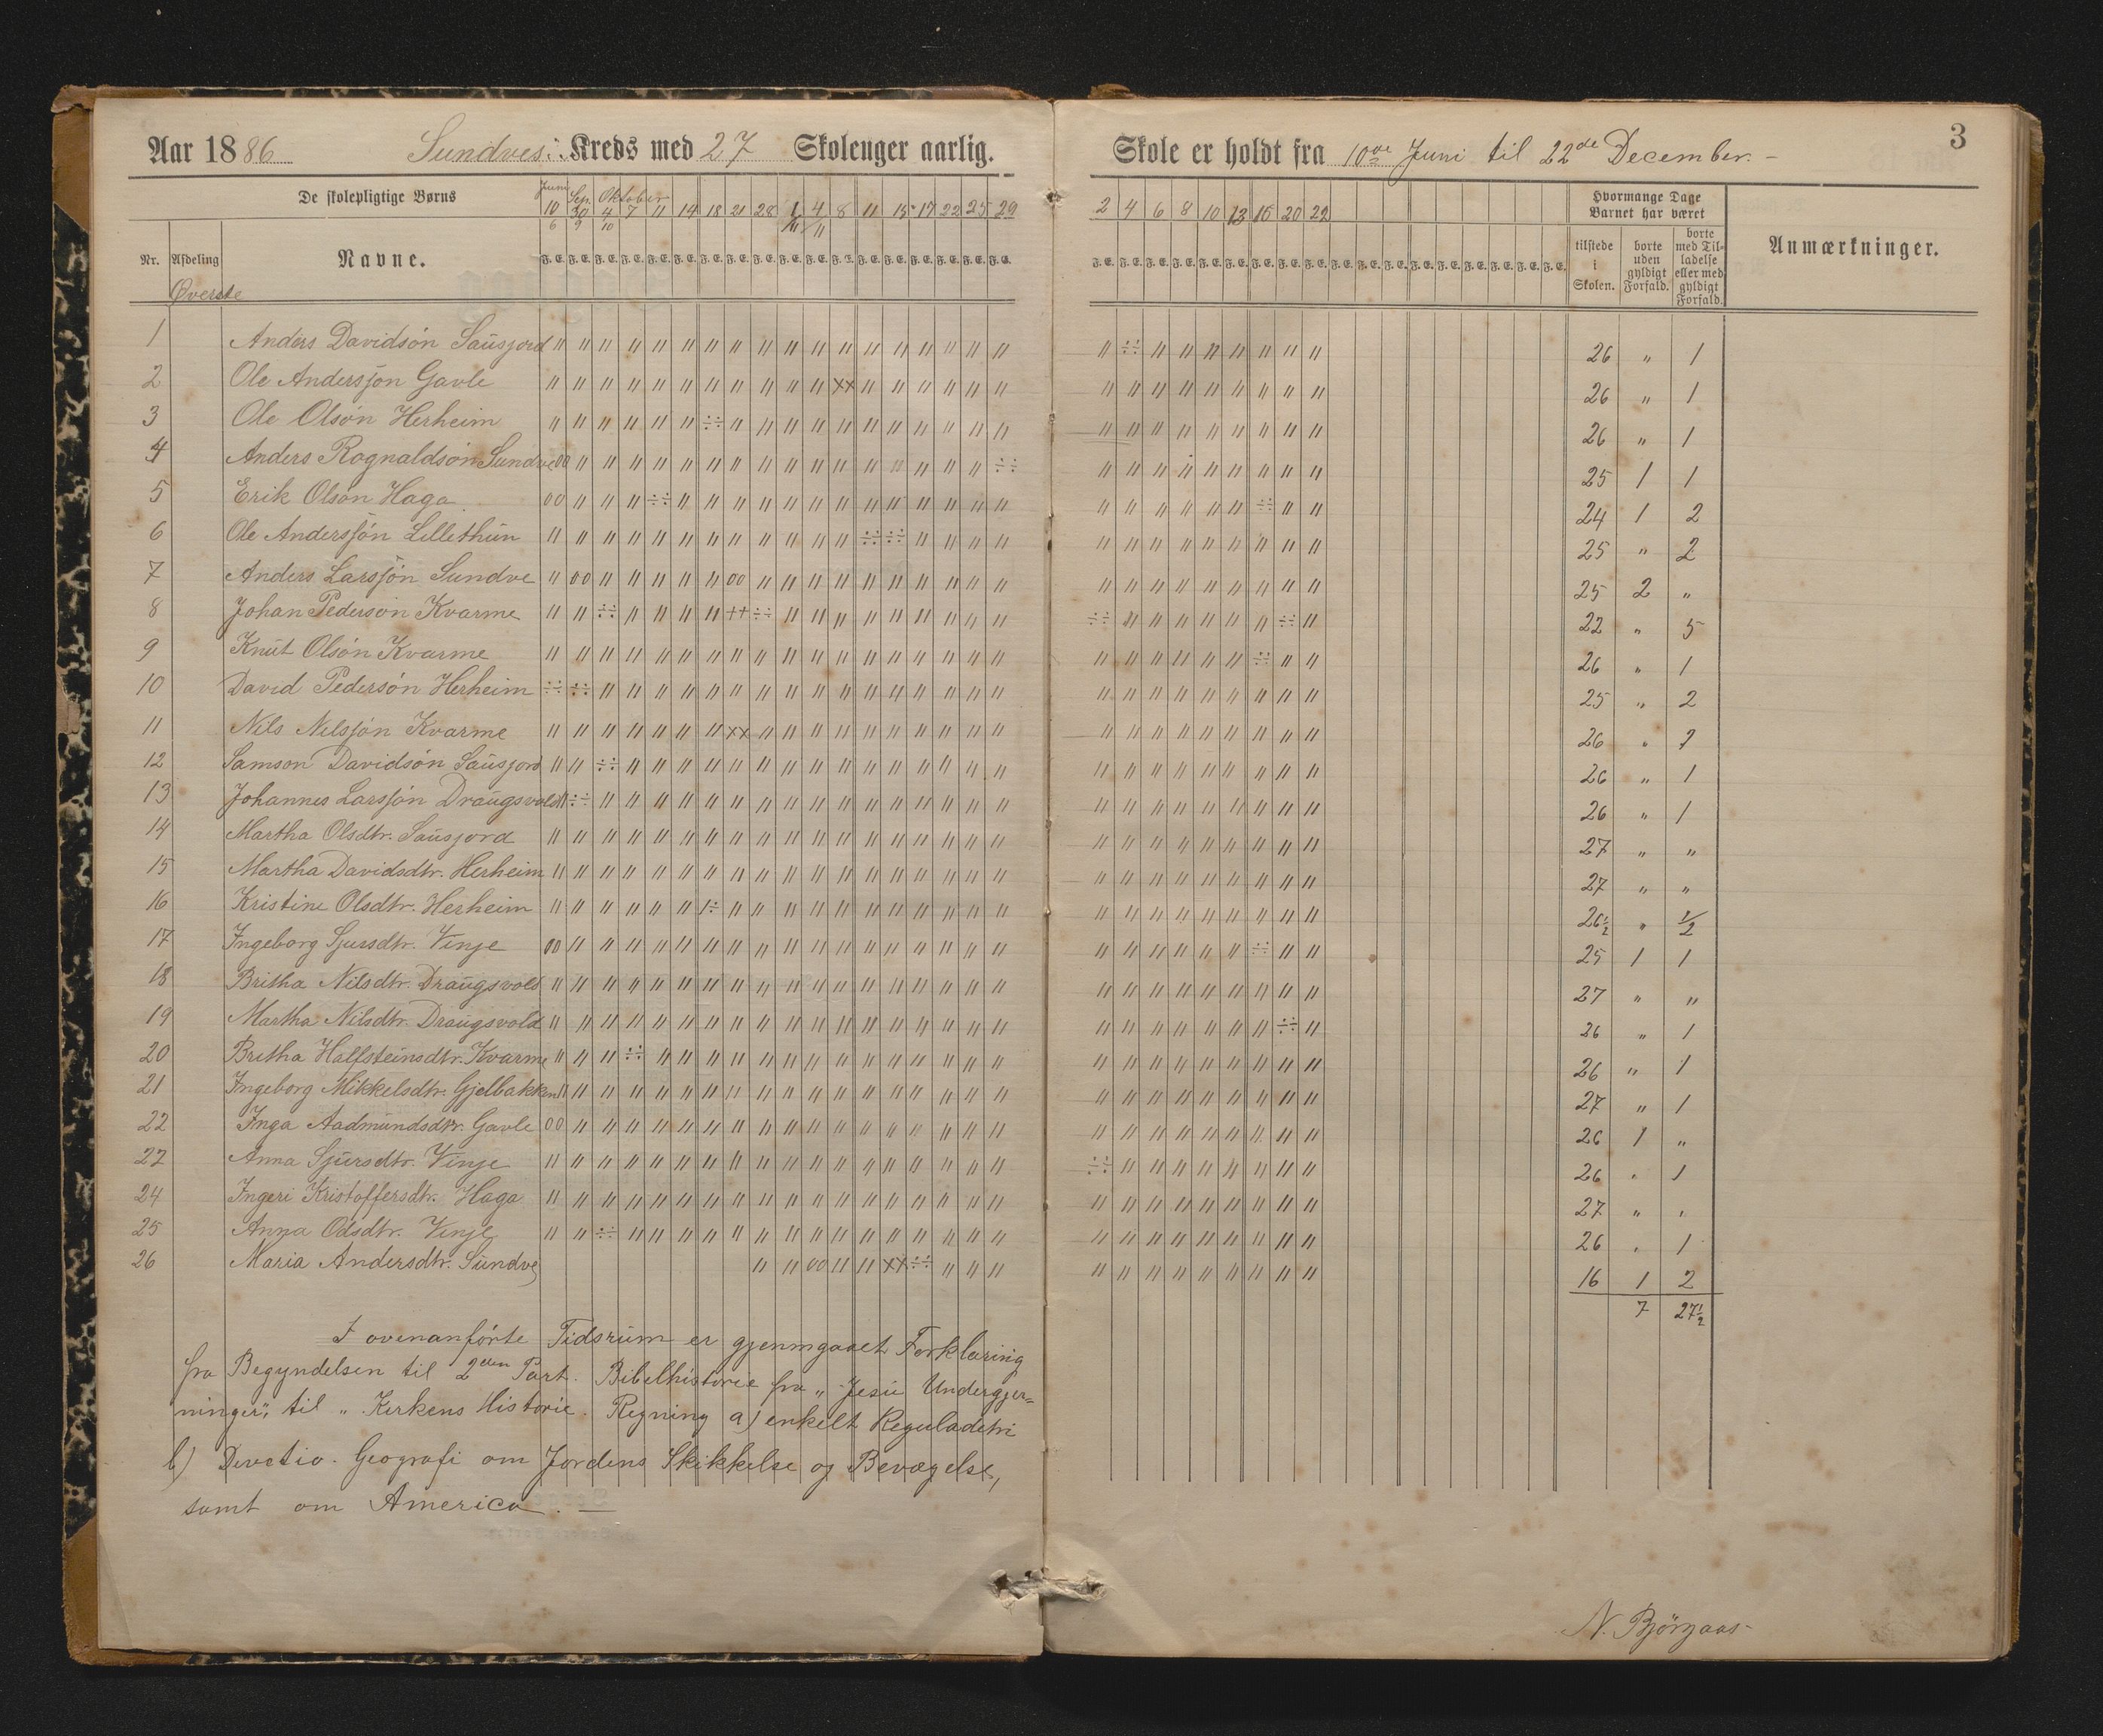 3
Aar 1886 Sundves Kreds med 27 Skolenger aarlig.
Skole er holdt fra 10de Juni til 22de December.-
De skolepligtige Børns
Juni Sep. Oktober
10 30 4 7 11 14 18 21 28 1 4 8 11 15 17 22 25 29
6 9 10 11 11
2 4 6 8 10 13 16 20 22
Hvormange Dage
Barnet har været
Nr. Afdeling Navne.
F. E. F. E. F. E. F. E. F. E. F. E. F. E. F. E. F. E. F. E. F. E. F. E. F. E. F. E. F. E. F. E. F. E. F. E.
F. E. F. E. F. E. F. E. F. E. F. E. F. E. F. E. F. E. F. E. F. E. F. E. F. E. F. E. F. E. F. E. F. E. F. E.
tilstede i Skolen.
borte uden gyldigt Forfald.
borte med Tilladelse eller med gyldigt Forfald.
Anmærkninger.
Øverste
1 Anders Davidsön Sausjord 26 " 1
2 Ole Andersson Gavle 26 " 1
3 Ole Olsön Herheim 26 " 1
4 Anders Rognaldsön Sundve 25 1 1
5 Erik Olsön Haga 24 1 2
6 Ole Anderssön Lillethun 25 " 2
7 Anders Larssön Sundve 25 2 "
8 Johan Pedersön Kvarme 22 " 5
9 Knut Olsön Kvarme 26 " 1
10 David Pedersön Herheim 25 " 2
11 Nils Nilssön Kvarme 26 " 1
12 Samson Davidsön Sausjord 26 " 1
13 Johannes Larssön Draugsvold 26 " 1
14 Martha Olsdtr. Sausjord 27 " "
15 Martha Davidsdtr. Herheim 27 " "
16 Kristine Olsdtr. Herheim 26½ " ½
17 Ingeborg Sjursdtr. Vinje 25 1 1
18 Britha Nilsdtr. Draugsvold 27 " "
19 Martha Nilsdtr. Draugsvold 26 " 1
20 Britha Halfsteinsdtr. Kvarme 26 " 1
21 Ingeborg Mikkelsdtr. Gjelbakken 27 " 1
22 Inga Aadmundsdtr. Gavle 26 1 "
23 Anna Sjursdtr. Vinje 26 " 1
24 Ingeri Kristoffersdtr. Haga 27 " "
25 Anna Odsdtr. Vinje 26 " 1
26 Maria Andersdtr. Sundve 16 1 2
7 27½
I ovenanförte Tidsrum er gjenngaaet Forklaring
fra Begyndelsen til 2den Part. Bibelhistorie fra „Jesu Undergjer=
ninger", til „Kirkens Historie. Regning a) enkelt Reguladetri
b) Devetio. Geografi om Jordens Skikkelse og Bevægelse,
samt om America. —
N. Björgaas